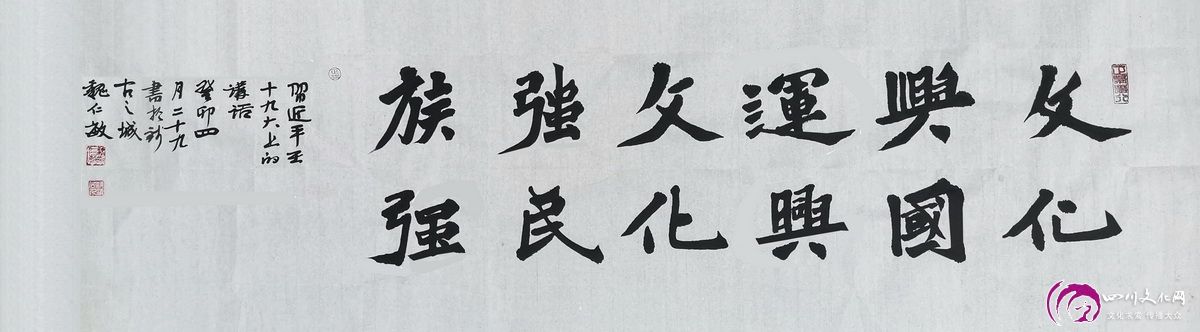 文化
興國
運興
文化
強民
族强
習近平
十九大上的
講話
癸卯四
月二十九
書於
古之城
魏仁敏
四川文化网
文化求索 传播大众